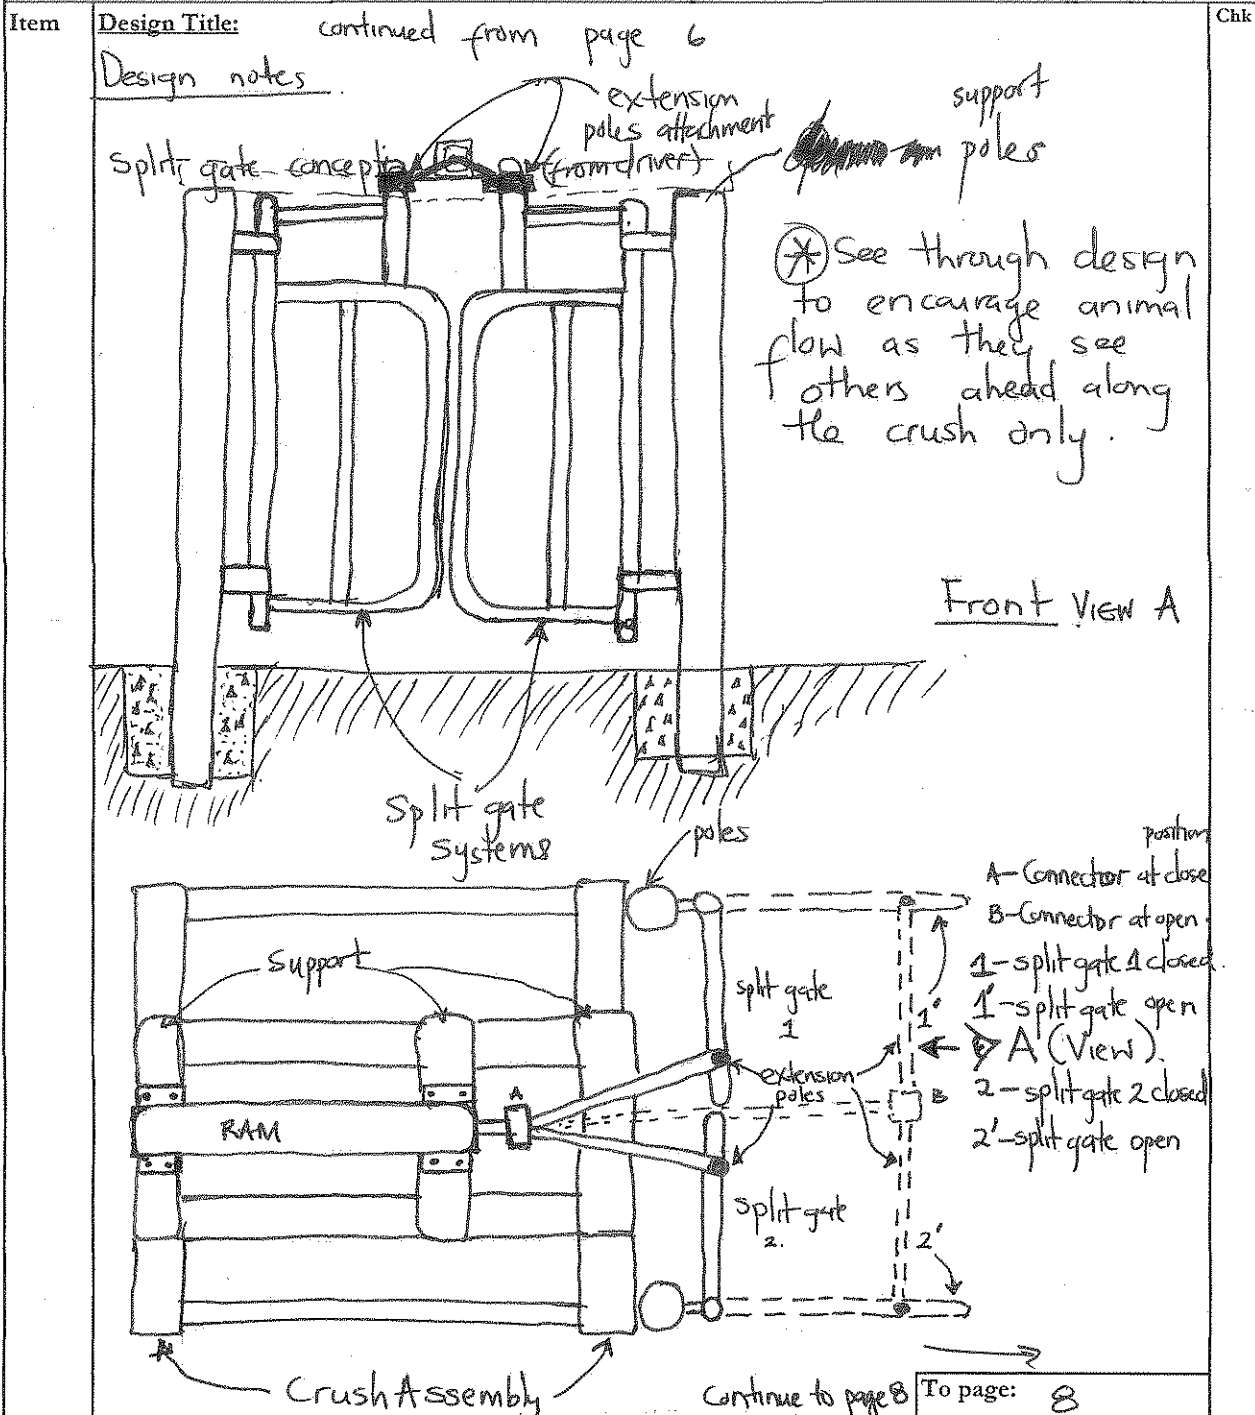 Item
Design Title:
continued from page 6
Chk
Design notes
extension
poles attachment
(from driver)
support
poles
Split gate concept
* See through design
to encourage animal
flow as they see
others ahead along
the crush only.
Front VIEW A
Split gate
systems
poles
position
A-Connector at close
B-Connector at open
1-split gate 1 closed.
1'-split gate open
A (View).
2-split gate 2 closed
2'-split gate open
Support
split gate
1
1'
extension
poles
A
B
RAM
split gate
2.
2'
Crush Assembly
Continue to page 8
To page: 8